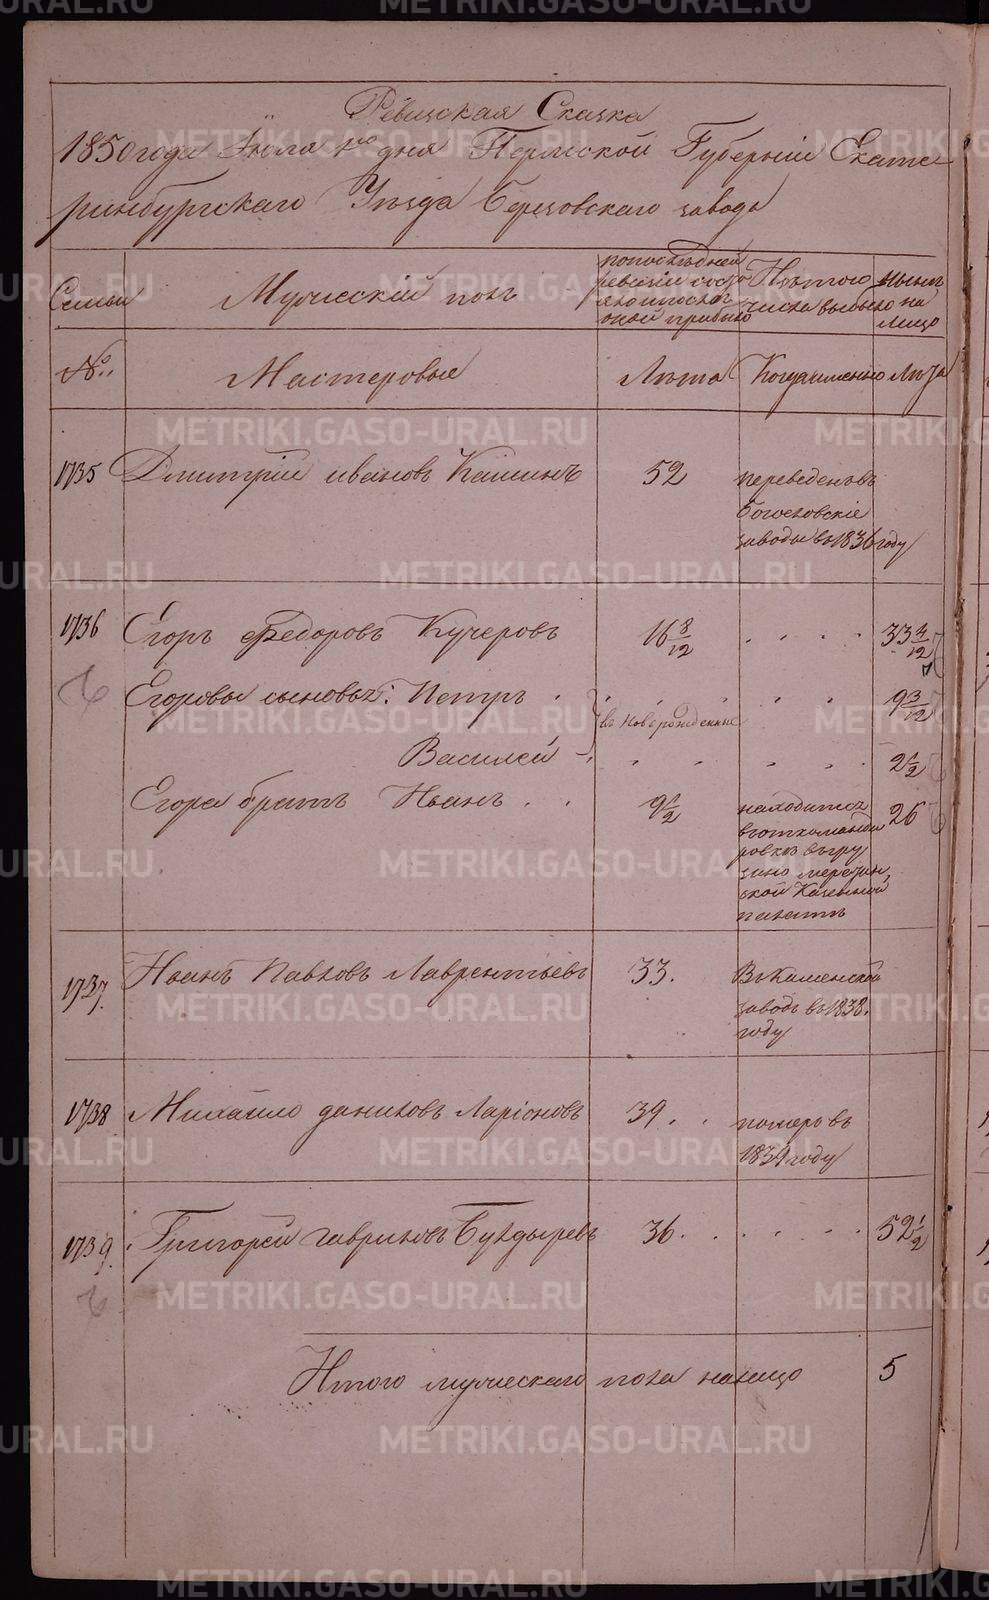 Ревизская Сказка
1850 года Июля 1го дня Пермской Губернiи Екате
ринбургскаго Уѣзда Березовскаго завода
Семьи
Мужескiй полъ
попослѣдней ревизiи состояло
Изъ того числа выбыло
нынѣ на лицо
№
Мастеровые
Лѣта
Когда именно
Лѣта
1735 Дмитрiй ивановъ Кашинъ 52 переведенъ въ
Богословскiе
заводы въ 1836 году
1736 Егоръ Федоровъ Кучеровъ 16 8/12 . . . . 33 4/12
Егоровы сыновья: Петръ . . . . 9 3/12
въ новорожденные
Василей . . . . 2 1/2
Егора братъ Иванъ . . 9 1/2 находится 26
въ откоманди
ровкѣ въ гру
зино
ской Казенной
палатѣ
1737. Иванъ Павловъ Лаврентьевъ 33. Въ Каменской
заводъ въ 1838.
году
1738 Михайло даниловъ Ларiоновъ 39 . . померъ въ
1839 году
1739. Григорей гавриловъ Булдыревъ 36 . . . . . 52 1/2
Итого мужескаго пола налицо 5
METRIKI.GASO-URAL.RU